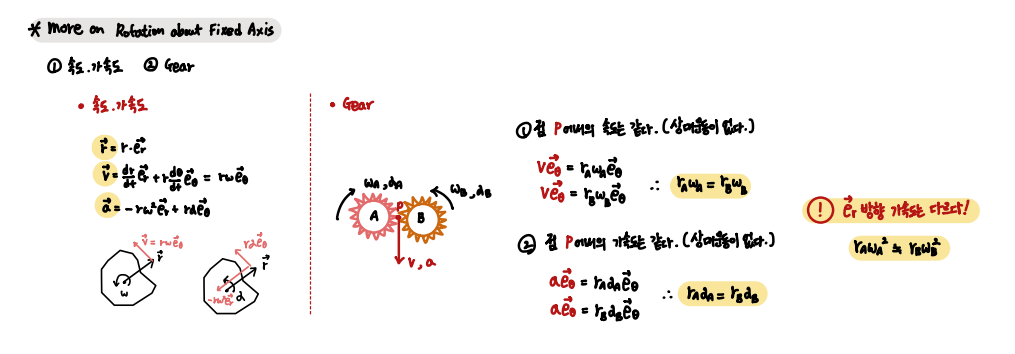 * More on Rotation about Fixed Axis
① 속도.가속도 ② Gear
• 속도.가속도
r⃗ = r·e⃗r
v⃗ = dr/dt e⃗r + r dθ/dt e⃗θ = rω e⃗θ
a⃗ = -rω² e⃗r + rα e⃗θ
v⃗ = rω e⃗θ
r⃗
ω
rα e⃗θ
r⃗
-rω² e⃗r
α
• Gear
ωA, αA
ωB, αB
A
P
B
v, a
① 점 P에서의 속도는 같다. (상대운동이 없다.)
v e⃗θ = rAωA e⃗θ
v e⃗θ = rBωB e⃗θ
∴ rAωA = rBωB
② 점 P에서의 가속도는 같다. (상대운동이 없다.)
a e⃗θ = rAαA e⃗θ
a e⃗θ = rBαB e⃗θ
∴ rAαA = rBαB
! e⃗r 방향 가속도는 다르다!
rAωA² ≒ rBωB²